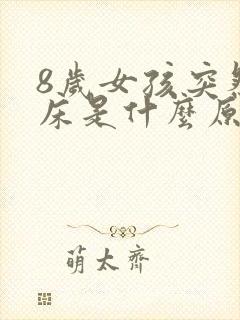 8歲女孩突然
床是什麼原
萌太齊